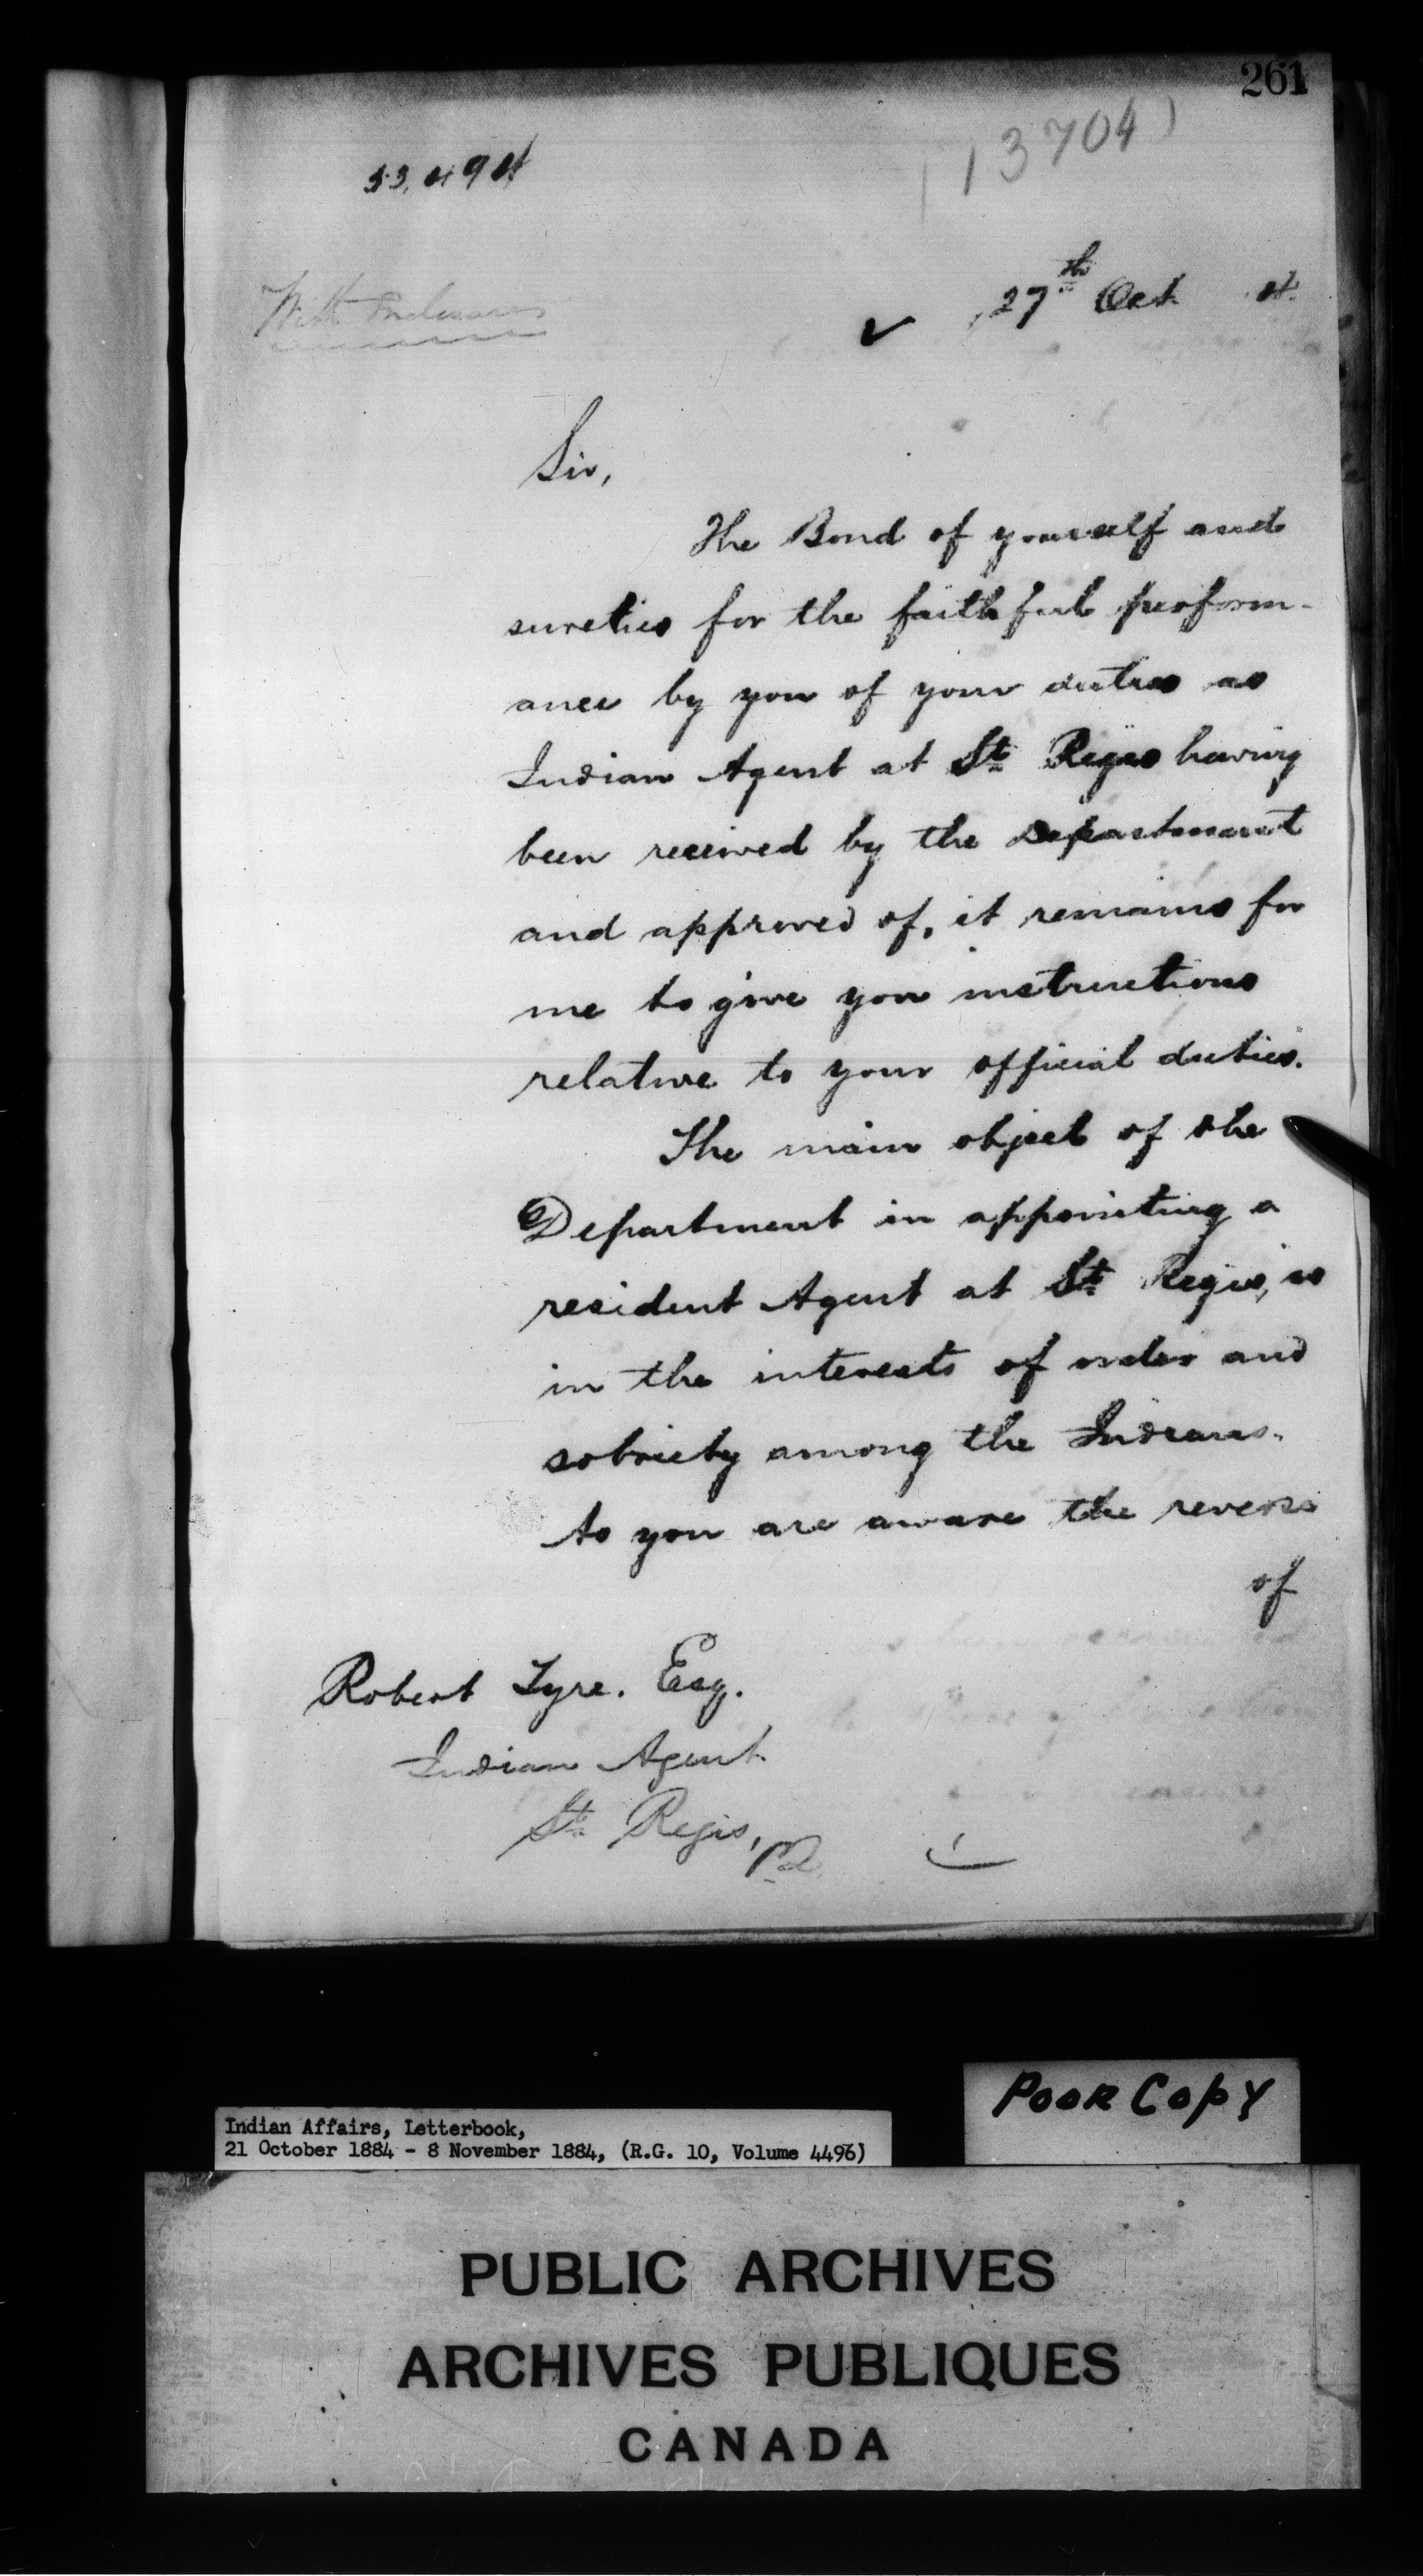 261
13704)
53,494
27th Oct. 4.
With Enclosures
Sir,
The Bond of yourself and
sureties for the faithful perform-
ance by you of your duties as
Indian Agent at St. Regis having
been received by the Department
and approved of, it remains for
me to give you instructions
relative to your official duties.
The main object of the
Department in appointing a
resident Agent at St. Regis, is
in the interests of order and
sobriety among the Indians.
As you are aware the reverse
of
Robert Tyre. Esq.
Indian Agent
St. Regis, P.Q.
Poor Copy
Indian Affairs, Letterbook,
21 October 1884 - 8 November 1884, (R.G. 10, Volume 4496)
PUBLIC ARCHIVES
ARCHIVES PUBLIQUES
CANADA